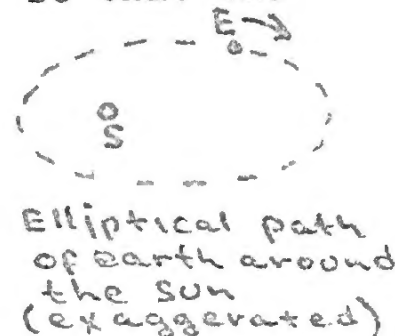 E
S
Elliptical path
of earth around
the sun
(exaggerated)